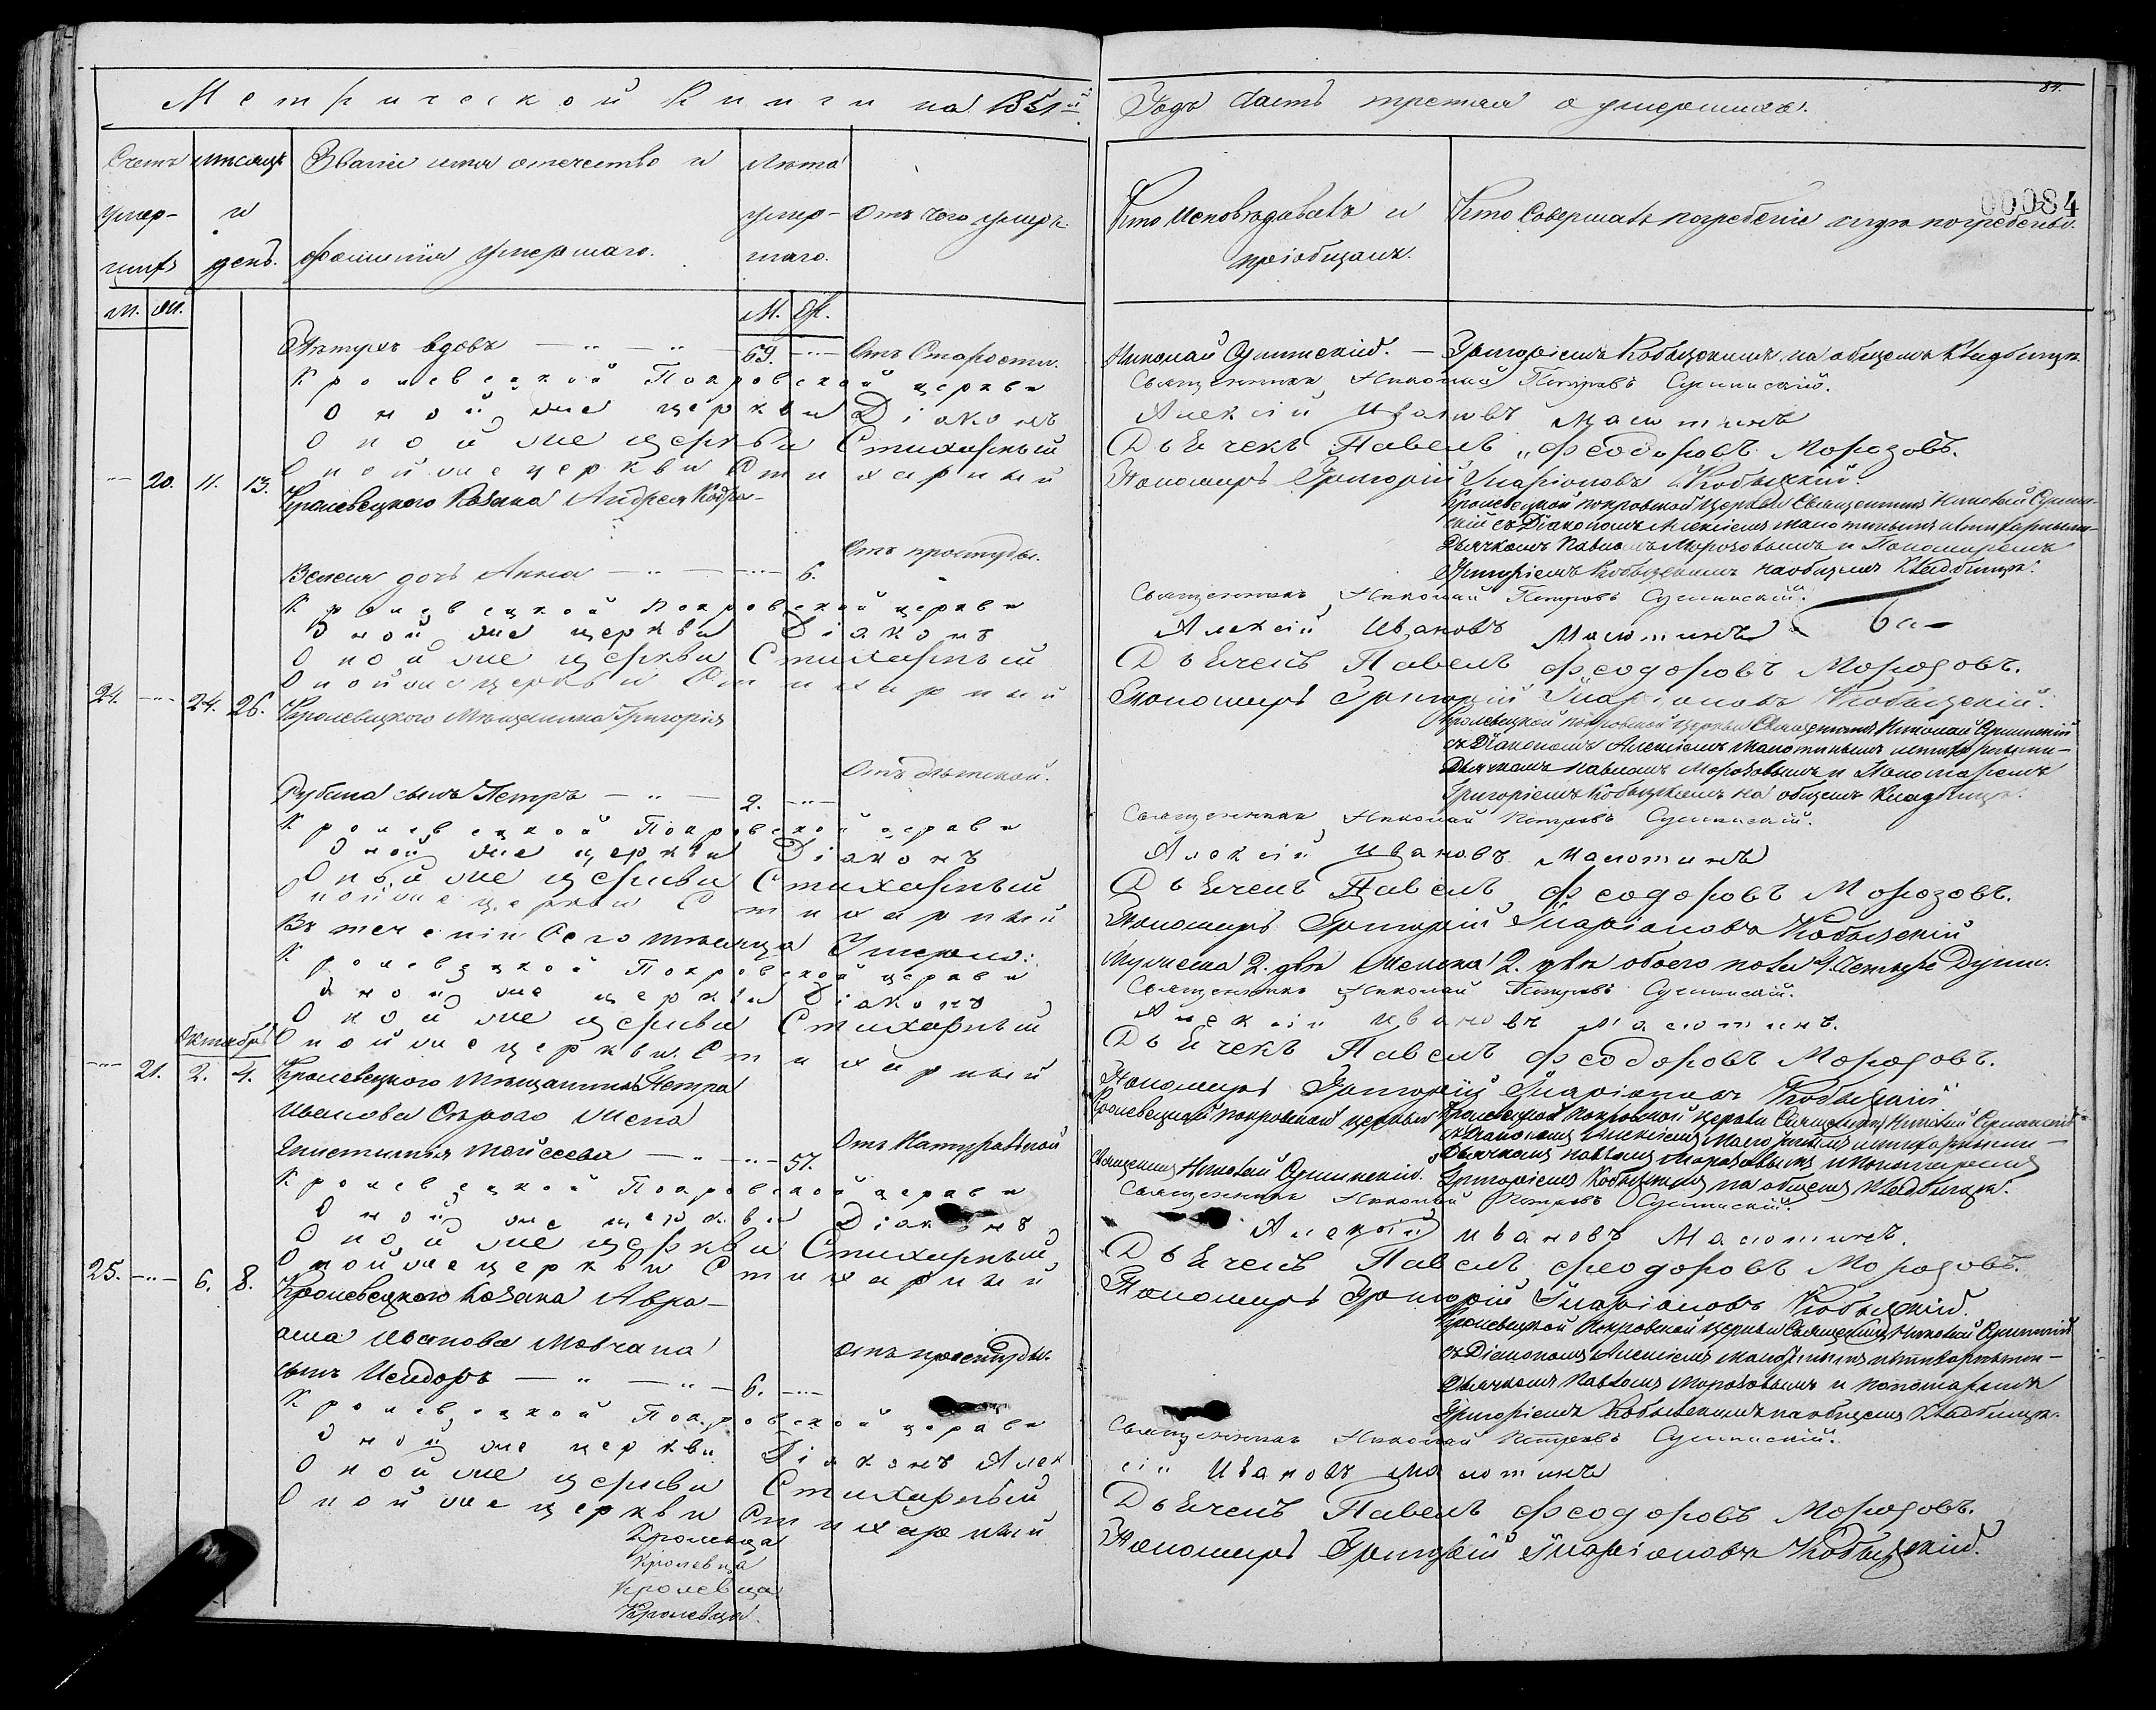 Метрической Книги на 1851й
Годъ Часть третая о умершихъ.
84.
00084
Счетъ умер-шихъ
Мѣсяцъ и день.
Званіе имя отечество и фамилія умершаго.
Лѣта умер-шаго.
Отъ чего умеръ.
Кто Исповѣдавалъ и пріобщалъ.
Кто Совершалъ погребеніе и гдѣ погребены.
М. Ж.
М. Ж.
вдовъ 69. Отъ Старости. Николай Сушинскій. Григоріемъ Кобыжскимъ на общемъ Кладбищѣ.
Кролевецкой Покровской церкви Священникъ Николай Петровъ Сушинскій.
Оной же церкви Діаконъ Алексій Ивановъ Малютинъ
Оной же церкви Стихарный Дьячекъ Павелъ Феодоровъ Морозовъ.
Оной же церкви Стихарный Пономарь Григорій Иларіоновъ Кобыжскій.
20. 11. 13. Кролевецкого Козака Андрея
Кролевецкой покровской Церкви Священникъ Николай Сушин-
скій съ Діакономъ Алексіемъ Малютинымъ и стихарными
Дьячкомъ Павломъ Морозовымъ и Пономаремъ
Отъ простуды.
дочь Анна 6. Григоріемъ Кобыжскимъ на общемъ Кладбищѣ.
Кролевецкой покровской церкви Священникъ Николай Петровъ Сушинскій.
Оной же церкви Діаконъ Алексій Ивановъ Малютинъ
Оной же церкви Стихарный Дьячекъ Павелъ Феодоровъ Морозовъ.
Оной же церкви Стихарный Пономарь Григорій Иларіоновъ Кобыжскій.
24. 24. 26. Кролевецкого Мѣщанина Григорія
Кролевецкой покровской церкви Священникъ Николай Сушинскій
съ Діакономъ Алексіемъ Малютинымъ и стихарными
Дьячкомъ Павломъ Морозовымъ и Пономаремъ
Отъ дѣтской.
Рубана сынъ Петръ 2. Григоріемъ Кобыжскимъ на общемъ Кладбищѣ.
Кролевецкой Покровской церкви Священникъ Николай Петровъ Сушинскій.
Оной же церкви Діаконъ Алексій Ивановъ Малютинъ
Оной же церкви Стихарный Дьячекъ Павелъ Феодоровъ Морозовъ.
Оной же церкви Стихарный Пономарь Григорій Иларіоновъ Кобыжскій
Въ теченіи Сего мѣсяца Умерло: Мужеска 2. два Женска 2. двѣ обоего пола 4. Четыре Души.
Кролевецкой Покровской церкви Священникъ Николай Петровъ Сушинскій.
Оной же церкви Діаконъ Алексій Ивановъ Малютинъ.
Оной же церкви Стихарный Дьячекъ Павелъ Феодоровъ Морозовъ.
Оной же церкви Стихарный Пономарь Григорій Иларіоновъ Кобыжскій
Октябрь
21. 2. 4. Кролевецкого Мѣщанина Петра
Иванова Сѣрого Жена
Мойсеева 57. Отъ Натуральной
Кролевецкой покровской церкви
Священникъ Николай Сушинскій.
Кролевецкой покровской церкви Священникъ Николай Сушинскій
съ Діакономъ Алексіемъ Малютинымъ и стихарными
Дьячкомъ Павломъ Морозовымъ и Пономаремъ
Григоріемъ Кобыжскимъ на общемъ Кладбищѣ.
Кролевецкой Покровской церкви Священникъ Николай Петровъ Сушинскій.
Оной же церкви Діаконъ Алексій Ивановъ Малютинъ.
Оной же церкви Стихарный Дьячекъ Павелъ Феодоровъ Морозовъ.
Оной же церкви Стихарный Пономарь Григорій Иларіоновъ Кобыжскій.
25. 6. 8. Кролевецкого Козака Авра-
ама Иванова Мовчана
сынъ Исидоръ 6. Отъ простуды.
Кролевецкой Покровской церкви Священникъ Николай Сушинскій
съ Діакономъ Алексіемъ Малютинымъ и стихарными
Дьячкомъ Павломъ Морозовымъ и пономаремъ
Григоріемъ Кобыжскимъ на общемъ Кладбищѣ.
Кролевецкой Покровской церкви Священникъ Николай Петровъ Сушинскій.
Оной же церкви Діаконъ Алексій Ивановъ Малютинъ
Оной же церкви Стихарный Дьячекъ Павелъ Феодоровъ Морозовъ.
Оной же церкви Стихарный Пономарь Григорій Иларіоновъ Кобыжскій.
Кролевца
Кролевца
Кролевца
Кролевца.